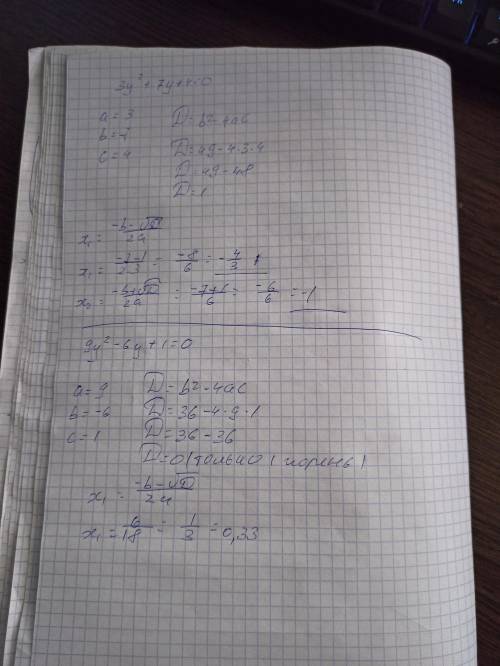 3y² + 7y + 4 = 0
a = 3 D = b² - 4ac
b = 7 D = 49 - 4·3·4
c = 4 D = 49 - 48
D = 1
x₁ = (-b - √D)/2a
x₁ = (-7-1)/(2·3) = -8/6 = -4/3
x₂ = (-b+√D)/2a = (-7+1)/6 = -6/6 = -1
9y² - 6y + 1 = 0
a = 9 D = b² - 4ac
b = -6 D = 36 - 4·9·1
c = 1 D = 36 - 36
D = 0 (только 1 корень)
x₁ = (-b - √D)/2a
x₁ = 6/18 = 1/3 = 0,33